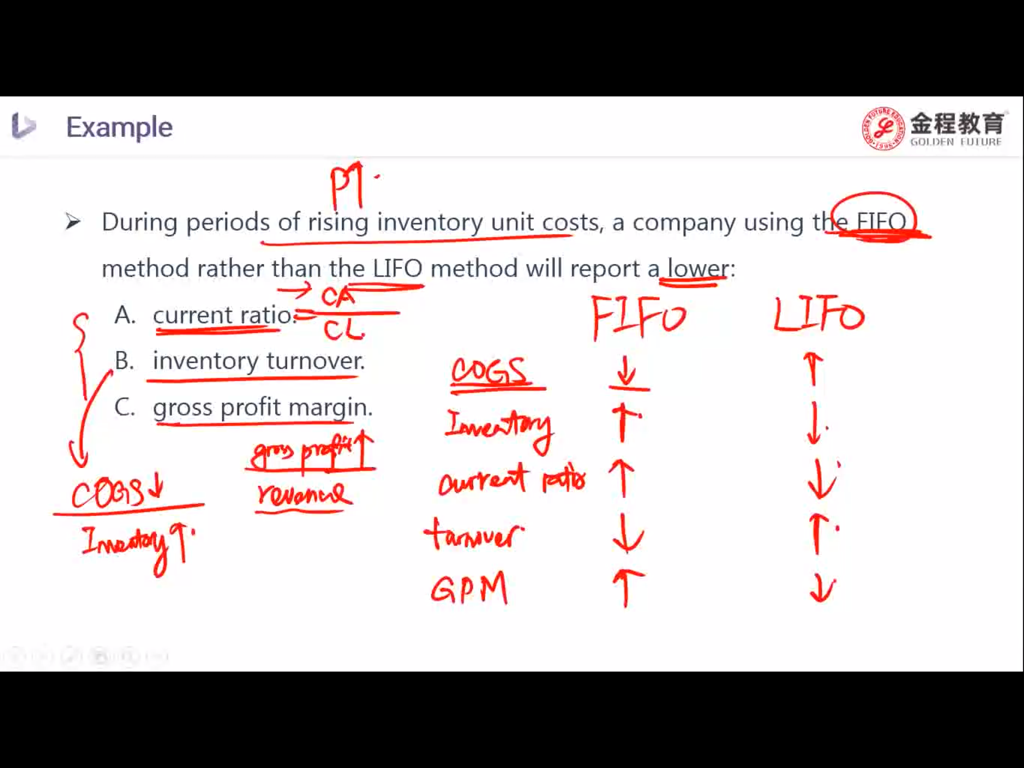 Example
金程教育
GOLDEN FUTURE
P↑
➤ During periods of rising inventory unit costs, a company using the FIFO
method rather than the LIFO method will report a lower:
A. current ratio. → CA
CL
B. inventory turnover.
C. gross profit margin.
gross profit↑
revenue
COGS↓
Inventory↑
FIFO LIFO
COGS ↓ ↑
Inventory ↑ ↓
current ratio ↑ ↓
turnover ↓ ↑
GPM ↑ ↓